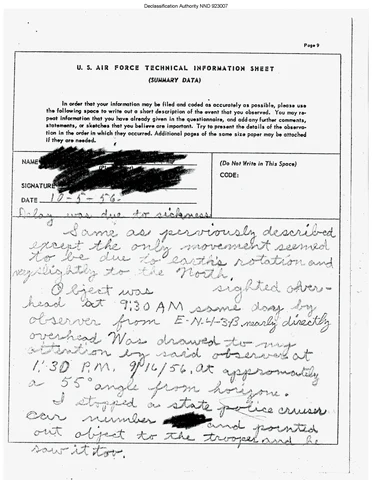 Declassification Authority NND 923007
Page 9
U. S. AIR FORCE TECHNICAL INFORMATION SHEET
(SUMMARY DATA)
In order that your information may be filed and coded as accurately as possible, please use
the following space to write out a short description of the event that you observed. You may re-
peat information that you have already given in the questionnaire, and add any further comments,
statements, or sketches that you believe are important. Try to present the details of the observa-
tion in the order in which they occurred. Additional pages of the same size paper may be attached
if they are needed.
NAME
(Do Not Write in This Space)
CODE:
SIGNATURE
DATE 10-5-56.
Delay was due to sickness
Same as perviously described
except the only movement seemed
to be due to earth's rotation and
slightly to the North.
Object was sighted over-
head at 9:30 AM same day by
observer from E-N-4-3B, nearly directly
overhead Was drawed to my
attention by said observer at
1:30 P.M. 9/16/56. At approximately
a 55° angle from horizone.
I stopped a state police cruiser
car number and pointed
out object to the trooper and he
saw it too.